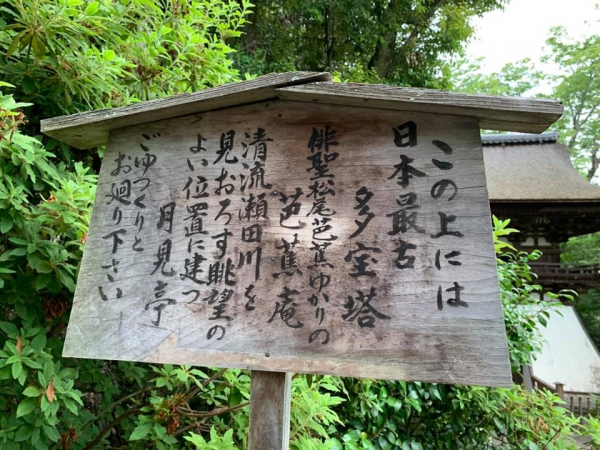 この上には
日本最古
多室塔
俳聖松尾芭蕉ゆかりの
芭蕉庵
清流瀬田川を
見おろす眺望の
よい位置に建つ
月見亭
ごゆっくりと
お廻り下さい